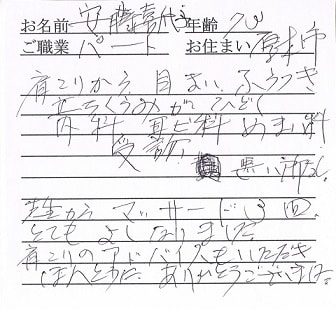 お名前 安藤喜代子 年齢
ご職業 パート お住まい 厚木市
肩こりから 目まい ふらつき
立ちくらみがひどく
内科 耳ビ科 めまい科
受診
悪い所なく
先生から マッサージ 3回
とてもよくなりました
肩こりのアドバイスもいただき
ほんとうに ありがとうございました。